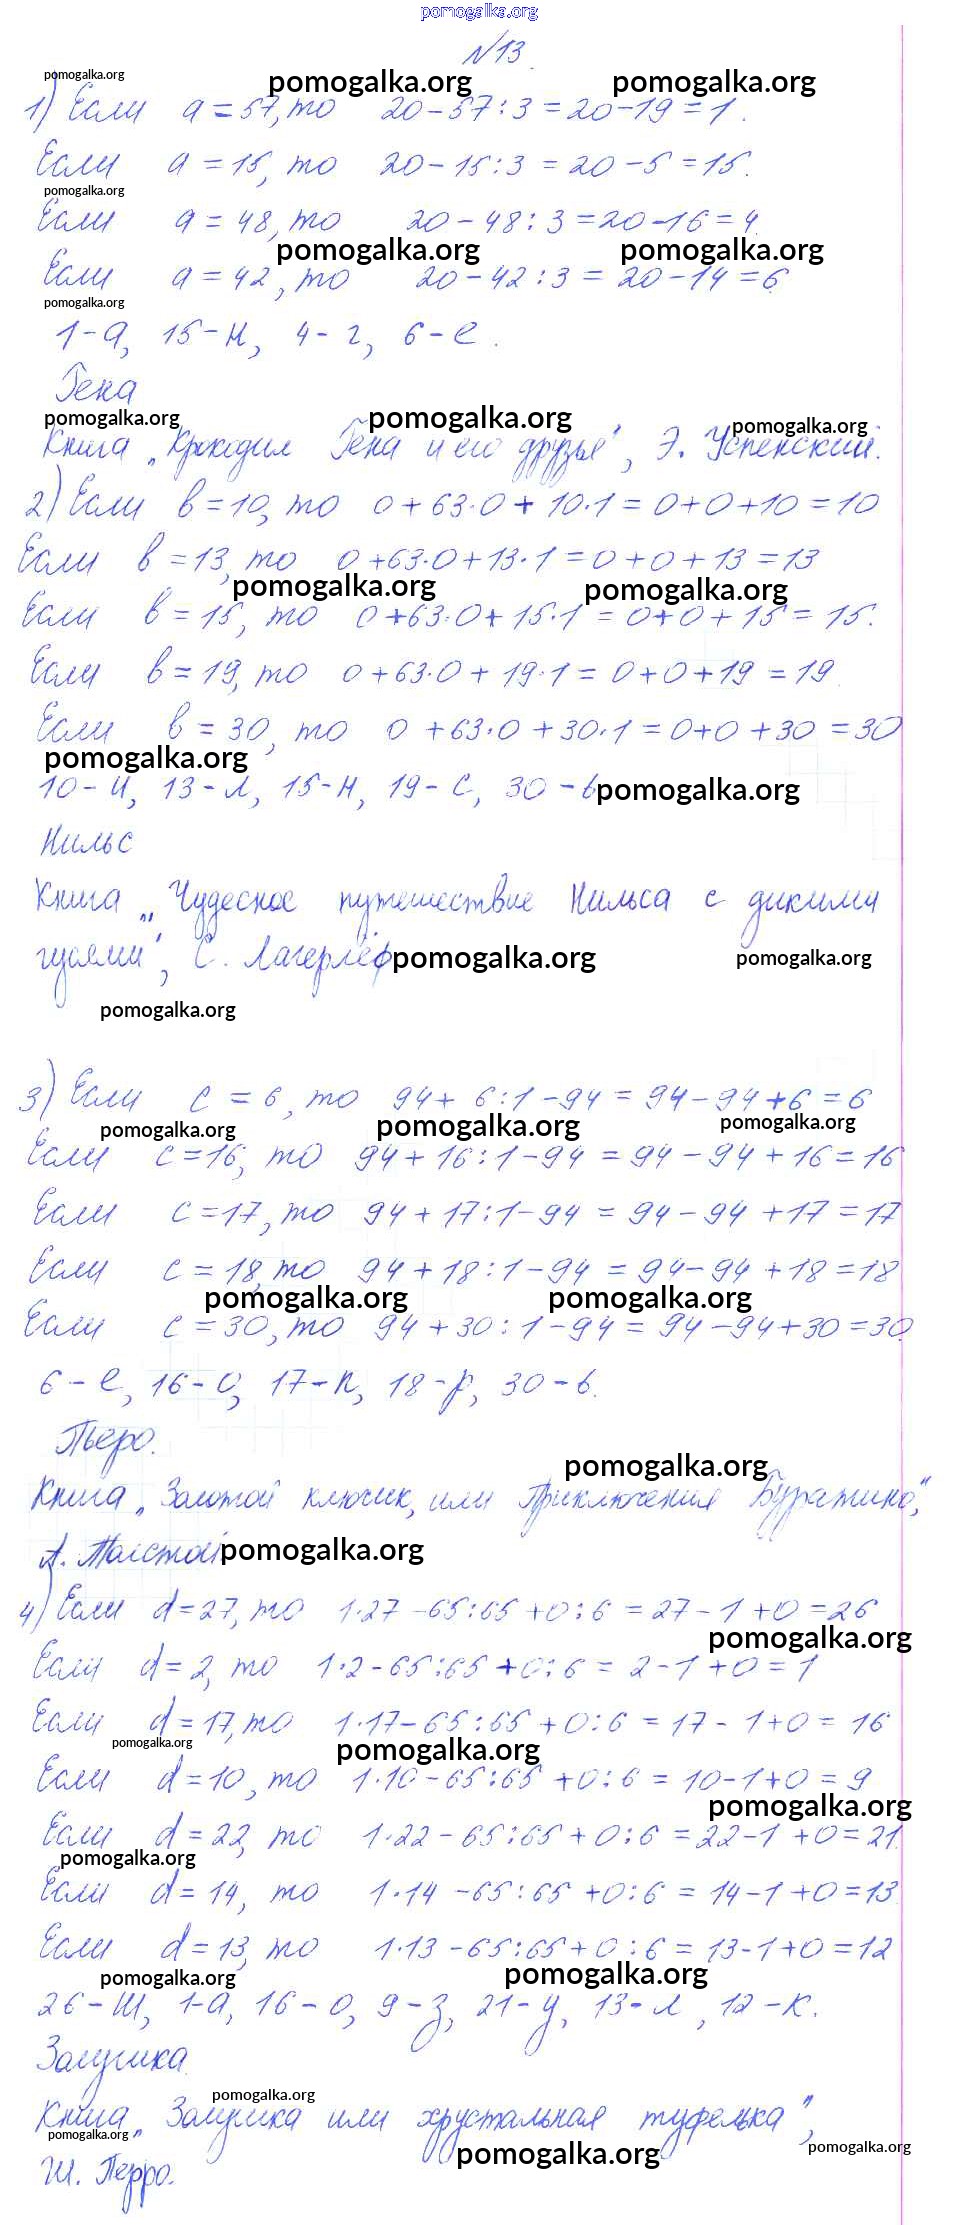 pomogalka.org
№13.
pomogalka.org pomogalka.org pomogalka.org
1) Если a = 57, то 20 - 57 : 3 = 20 - 19 = 1.
Если a = 15, то 20 - 15 : 3 = 20 - 5 = 15.
pomogalka.org
Если a = 48, то 20 - 48 : 3 = 20 - 16 = 4.
pomogalka.org pomogalka.org
Если a = 42, то 20 - 42 : 3 = 20 - 14 = 6.
pomogalka.org
1 - а, 15 - н, 4 - г, 6 - е.
Гена
pomogalka.org pomogalka.org pomogalka.org
Книга „Крокодил Гена и его друзья", Э. Успенский.
2) Если в = 10, то 0 + 63 · 0 + 10 · 1 = 0 + 0 + 10 = 10
Если в = 13, то 0 + 63 · 0 + 13 · 1 = 0 + 0 + 13 = 13
pomogalka.org pomogalka.org
Если в = 15, то 0 + 63 · 0 + 15 · 1 = 0 + 0 + 15 = 15.
Если в = 19, то 0 + 63 · 0 + 19 · 1 = 0 + 0 + 19 = 19.
Если в = 30, то 0 + 63 · 0 + 30 · 1 = 0 + 0 + 30 = 30
pomogalka.org
10 - и, 13 - л, 15 - н, 19 - с, 30 - ь pomogalka.org
Нильс
Книга „Чудесное путешествие Нильса с дикими
гусями", С. Лагерлёф pomogalka.org pomogalka.org
pomogalka.org
3) Если с = 6, то 94 + 6 : 1 - 94 = 94 - 94 + 6 = 6
pomogalka.org pomogalka.org pomogalka.org
Если с = 16, то 94 + 16 : 1 - 94 = 94 - 94 + 16 = 16
Если с = 17, то 94 + 17 : 1 - 94 = 94 - 94 + 17 = 17
Если с = 18, то 94 + 18 : 1 - 94 = 94 - 94 + 18 = 18
pomogalka.org pomogalka.org
Если с = 30, то 94 + 30 : 1 - 94 = 94 - 94 + 30 = 30.
6 - е, 16 - о, 17 - п, 18 - р, 30 - ь.
Пьеро.
pomogalka.org
Книга „Золотой ключик, или Приключения Буратино",
А. Толстой pomogalka.org
4) Если d = 27, то 1 · 27 - 65 : 65 + 0 : 6 = 27 - 1 + 0 = 26
pomogalka.org
Если d = 2, то 1 · 2 - 65 : 65 + 0 : 6 = 2 - 1 + 0 = 1
Если d = 17, то 1 · 17 - 65 : 65 + 0 : 6 = 17 - 1 + 0 = 16
pomogalka.org pomogalka.org
Если d = 10, то 1 · 10 - 65 : 65 + 0 : 6 = 10 - 1 + 0 = 9
pomogalka.org
Если d = 22, то 1 · 22 - 65 : 65 + 0 : 6 = 22 - 1 + 0 = 21.
pomogalka.org
Если d = 14, то 1 · 14 - 65 : 65 + 0 : 6 = 14 - 1 + 0 = 13.
Если d = 13, то 1 · 13 - 65 : 65 + 0 : 6 = 13 - 1 + 0 = 12
pomogalka.org pomogalka.org
26 - ш, 1 - а, 16 - о, 9 - з, 21 - у, 13 - л, 12 - к.
Золушка.
pomogalka.org
Книга „Золушка или хрустальная туфелька",
pomogalka.org pomogalka.org pomogalka.org
Ш. Перро.